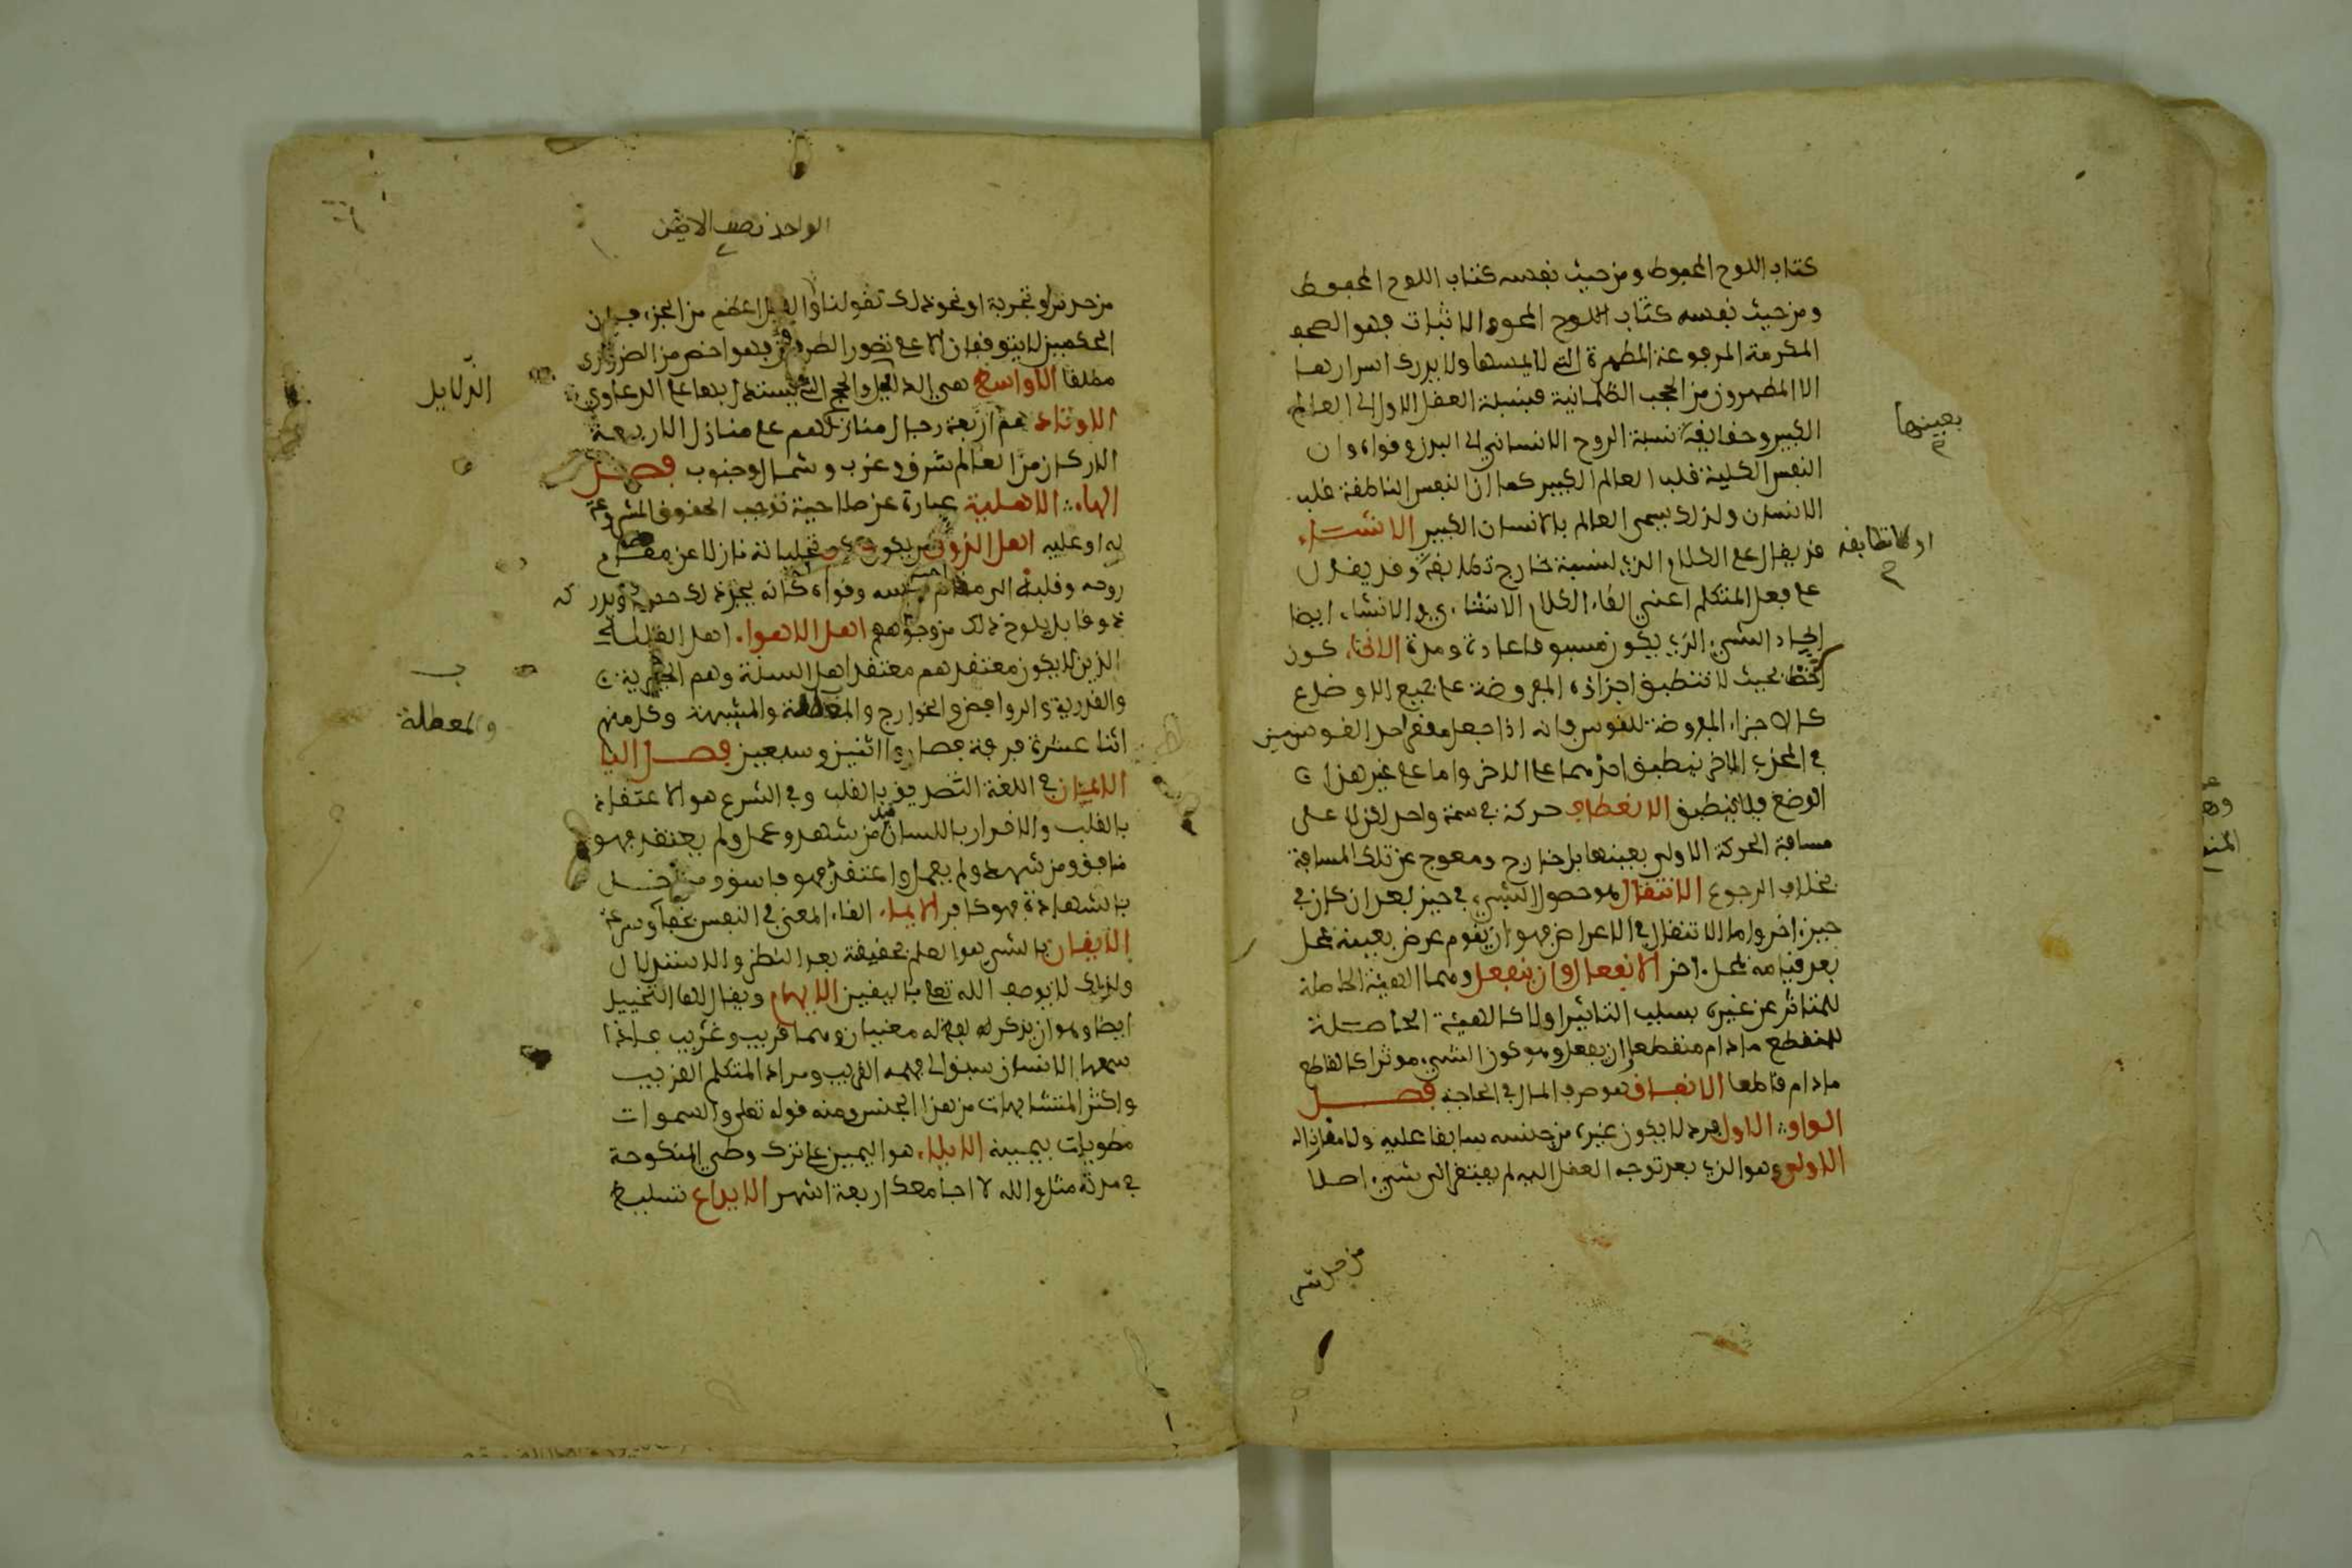 كتاب اللوح المحفوظ ومن حيث نفسه كتاب اللوح المحفوظ
ومن حيث نفسه كتاب اللوح المحو والاثبات فهو الصحف
المكرمة المرفوعة المطهرة التي لا يمسها ولا يدرك اسرارها
الا المطهرون من الحجب الظلمانية فنسبة العقل الاول الى العالم
الكبير وحقايقه نسبة الروح الانساني الى البدن وقواه وان
بعينها
النفس الكلية قلب العالم الكبير كما ان النفس الناطقة قلب
الانسان ولذلك يسمى العالم بالانسان الكبير الانشاء
قد يقال على الكلام الذي لنسبته خارج تطابقه وقد يقال
او لا تطابقه
على فعل المتكلم اعني القاء الكلام الانشائي والانشاء ايضا
ايجاد الشيء الذي يكون مسبوقا بمادة ومدة الانحناء كون
الخط بحيث لا تنطبق اجزاؤه المفروضة على جميع الاوضاع
كالاجزاء المفروضة للقوس فانه اذا جعل مقعر احد القوسين
في محدب الاخر ينطبق احدهما على الاخر واما على غير هذا
الوضع فلا ينطبق الانعطاف حركة في سمت واحد لكن لا على
مسافة الحركة الاولى بعينها بل خارج ومعوج عن تلك المسافة
بخلاف الرجوع الانتقال هو حصول الشيء في حيز بعد ان كان في
حيز اخر واما الانتقال في الاعراض فهو ان يقوم عرض بعينه بمحل
بعد قيامه بمحل اخر الانفعال وان ينفعل وهما الهيئة الحاصلة
للمتاثر عن غيره بسبب التاثير اولا كالهيئة الحاصلة
للمنقطع ما دام منقطعا ان يفعل وهو كون الشيء موثرا كالقاطع
ما دام قاطعا الانفاق هو صرف المال في الحاجة فصل
الواو الاول فرد لا يكون غيره من جنسه سابقا عليه ولا مقارنا له
الاولى وهو الذي بعد توجه العقل اليه لم يفتقر الى شيء اصلا
من حدس
الواحد نصف الاثنين
من حدس او تجربة او نحو ذلك كقولنا والكل اعظم من الجزء فان
الحكمين لا يتوقفان الا على تصور الطرفين فهو اخص من الضروري
مطلقا الاواسط هي الدلايل والحجج التي يستدل بها على الدعاوي
الدلايل
الاوتاد هم اربعة رجال منازلهم على منازل الاربعة
الاركان من العالم شرق وغرب وشمال وجنوب فصل
الهاء الاهلية عبارة عن صلاحية لوجوب الحقوق المشروعة
له او عليه اهل الذوق من يكون حكم تجلياته نازلا عن مقام
روحه وقلبه الى مقام نفسه وقواه كانه يجد ذلك حسا ويدركه
ذوقا بل يلوح ذلك من وجوههم اهل الاهواء اهل القبلة
الذين لا يكون معتقدهم معتقد اهل السنة وهم الجبرية
ب
والقدرية والروافض والخوارج والمعطلة والمشبهة وكل منهم
والمعطلة
اثنا عشرة فرقة فصاروا اثنين وسبعين فصل اليا
الايمان في اللغة التصديق بالقلب وفي الشرع هو الاعتقاد
بالقلب والاقرار باللسان قيل من شهد وعمل ولم يعتقد فهو
منافق ومن شهد ولم يعمل واعتقد فهو فاسق ومن اخل
بالشهادة فهو كافر الايماء القاء المعنى في النفس بخفاء وسرعة
الايقان بالشيء هو العلم بحقيقته بعد النظر والاستدلال
ولذلك لا يوصف الله تعالى باليقين الايهام ويقال لها التخييل
ايضا وهو ان يذكر لفظ له معنيان وهما قريب وغريب فاذا
سمعها الانسان سبق الى فهمه القريب ومراد المتكلم الغريب
واكثر المتشابهات من هذا الجنس ومنه قوله تعالى والسموات
مطويات بيمينه الايلاء هو اليمين على ترك وطي المنكوحة
في مدته مثل والله لا اجامعك اربعة اشهر الايداع تسليط